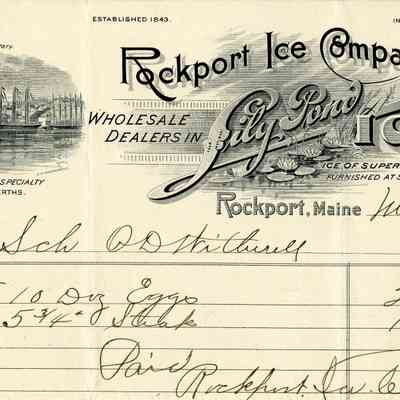 ESTABLISHED 1843.
IN
Rockport Ice Compa
WHOLESALE
DEALERS IN
Lily Pond
IC
ICE OF SUPER
FURNISHED AT S
SPECIALTY
ERTHS.
Rockport, Maine
Sch O D Witherell
10 Doz Eggs
5 3/4 Steak
Paid
Rockport Ice C